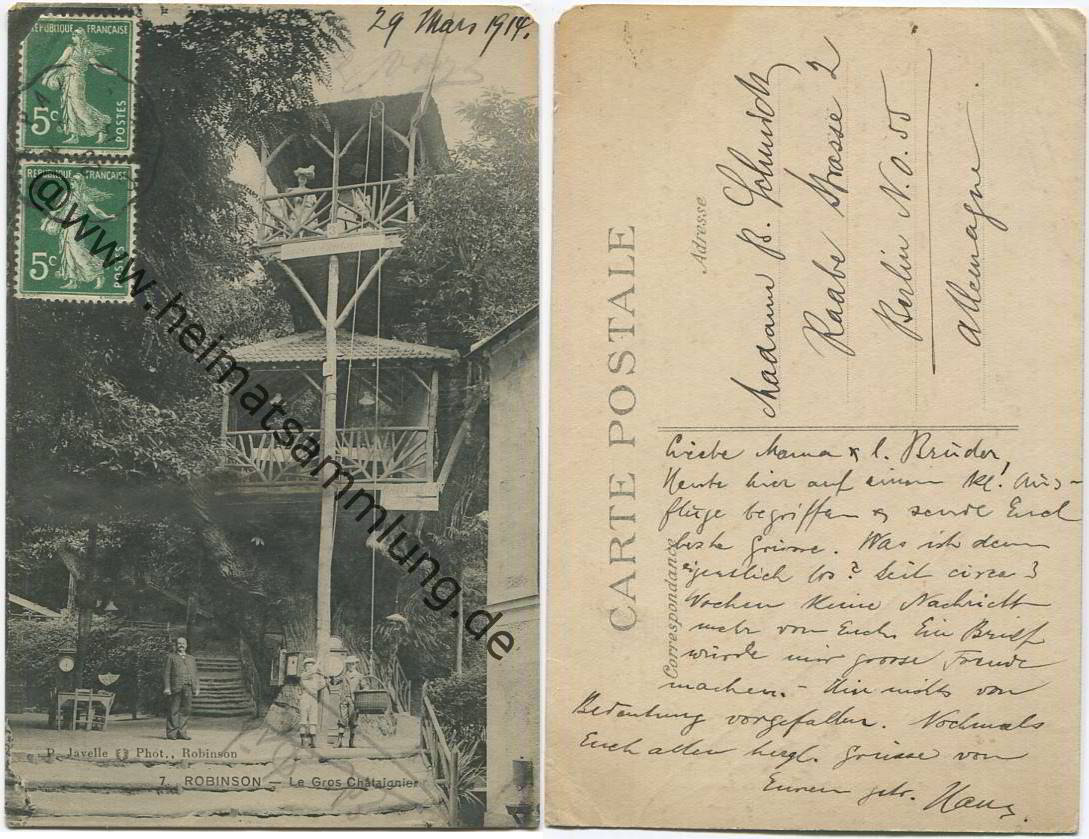 29 Mars 1914.
REPUBLIQUE FRANÇAISE
5c POSTES
REPUBLIQUE FRANÇAISE
5c POSTES
@www.heimatsammlung.de
P. Javelle Phot., Robinson
7. ROBINSON — Le Gros Châtaignier
CARTE POSTALE
Adresse
Madame B. Schmidt
Raabe Strasse 2
Berlin N.O. 55
Allemagne.
Correspondance
Liebe Mama & l. Brüder,
Heute hier auf einem kl. Aus-
fluge begriffen & sende Euch
beste Grüsse. Was ist denn
eigentlich los? Seit circa 3
Wochen keine Nachricht
mehr von Euch. Ein Brief
würde mir grosse Freude
machen. - Hier nichts von
Bedeutung vorgefallen. Nochmals
Euch allen herzl. Grüsse von
Eurem getr. Hans.